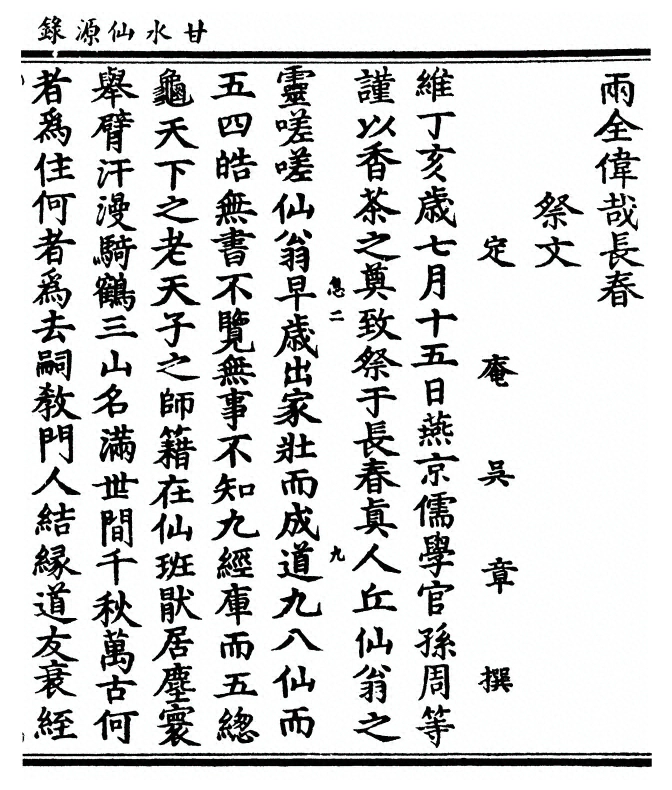 甘水仙源錄
兩全偉哉長春
祭文
定庵吳章撰
維丁亥歲七月十五日燕京儒學官孫周等
謹以香茶之奠致祭于長春眞人丘仙翁之
悳二 九
靈嗟嗟仙翁早歲出家壯而成道九八仙而
五四皓無書不覽無事不知九經庫而五總
龜天下之老天子之師籍在仙班猒居塵寰
舉臂汗漫騎鶴三山名滿世間千秋萬古何
者爲住何者爲去嗣教門人結緣道友衰絰